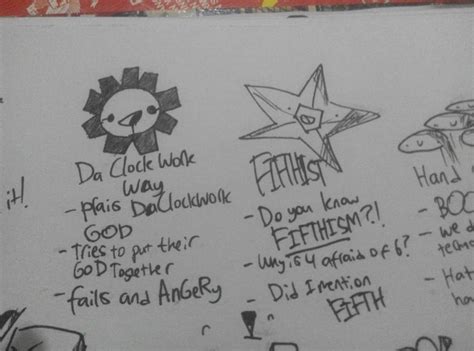 it!
Da Clock Work
Way
- pfais Da Clockwork
GOD
- Tries to put their
GOD Together
- fails and AnGeRy
FIFTHIST
- Do you know
FIFTHISM?!
- Why is 4 afraid of 6?
- Did I mention
FIFTH
Hand
- BOO
- we d
- Hat